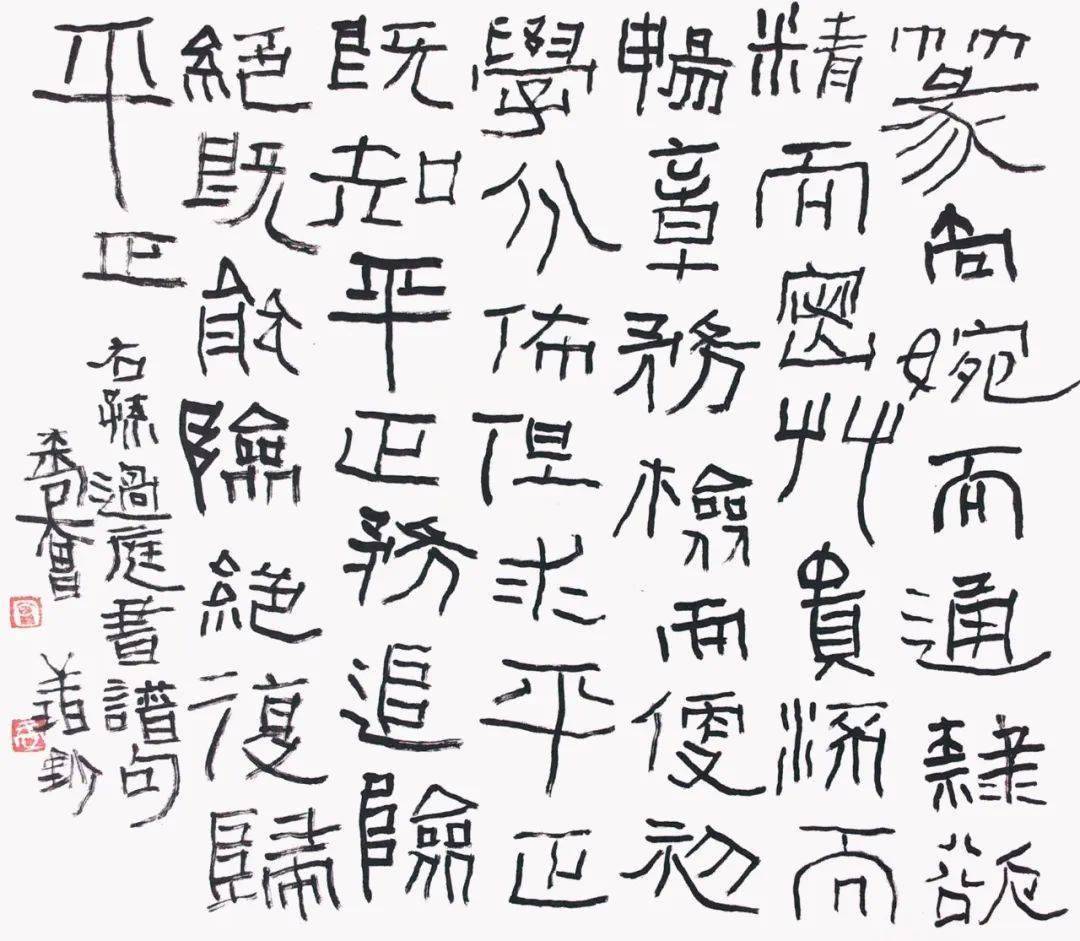 篆尚婉而通隸欲
精而密艸貴流而
暢章務檢而便初
學分佈但求平正
既知平正務追險
絕既能險絕復歸
平正
右孫過庭書譜句